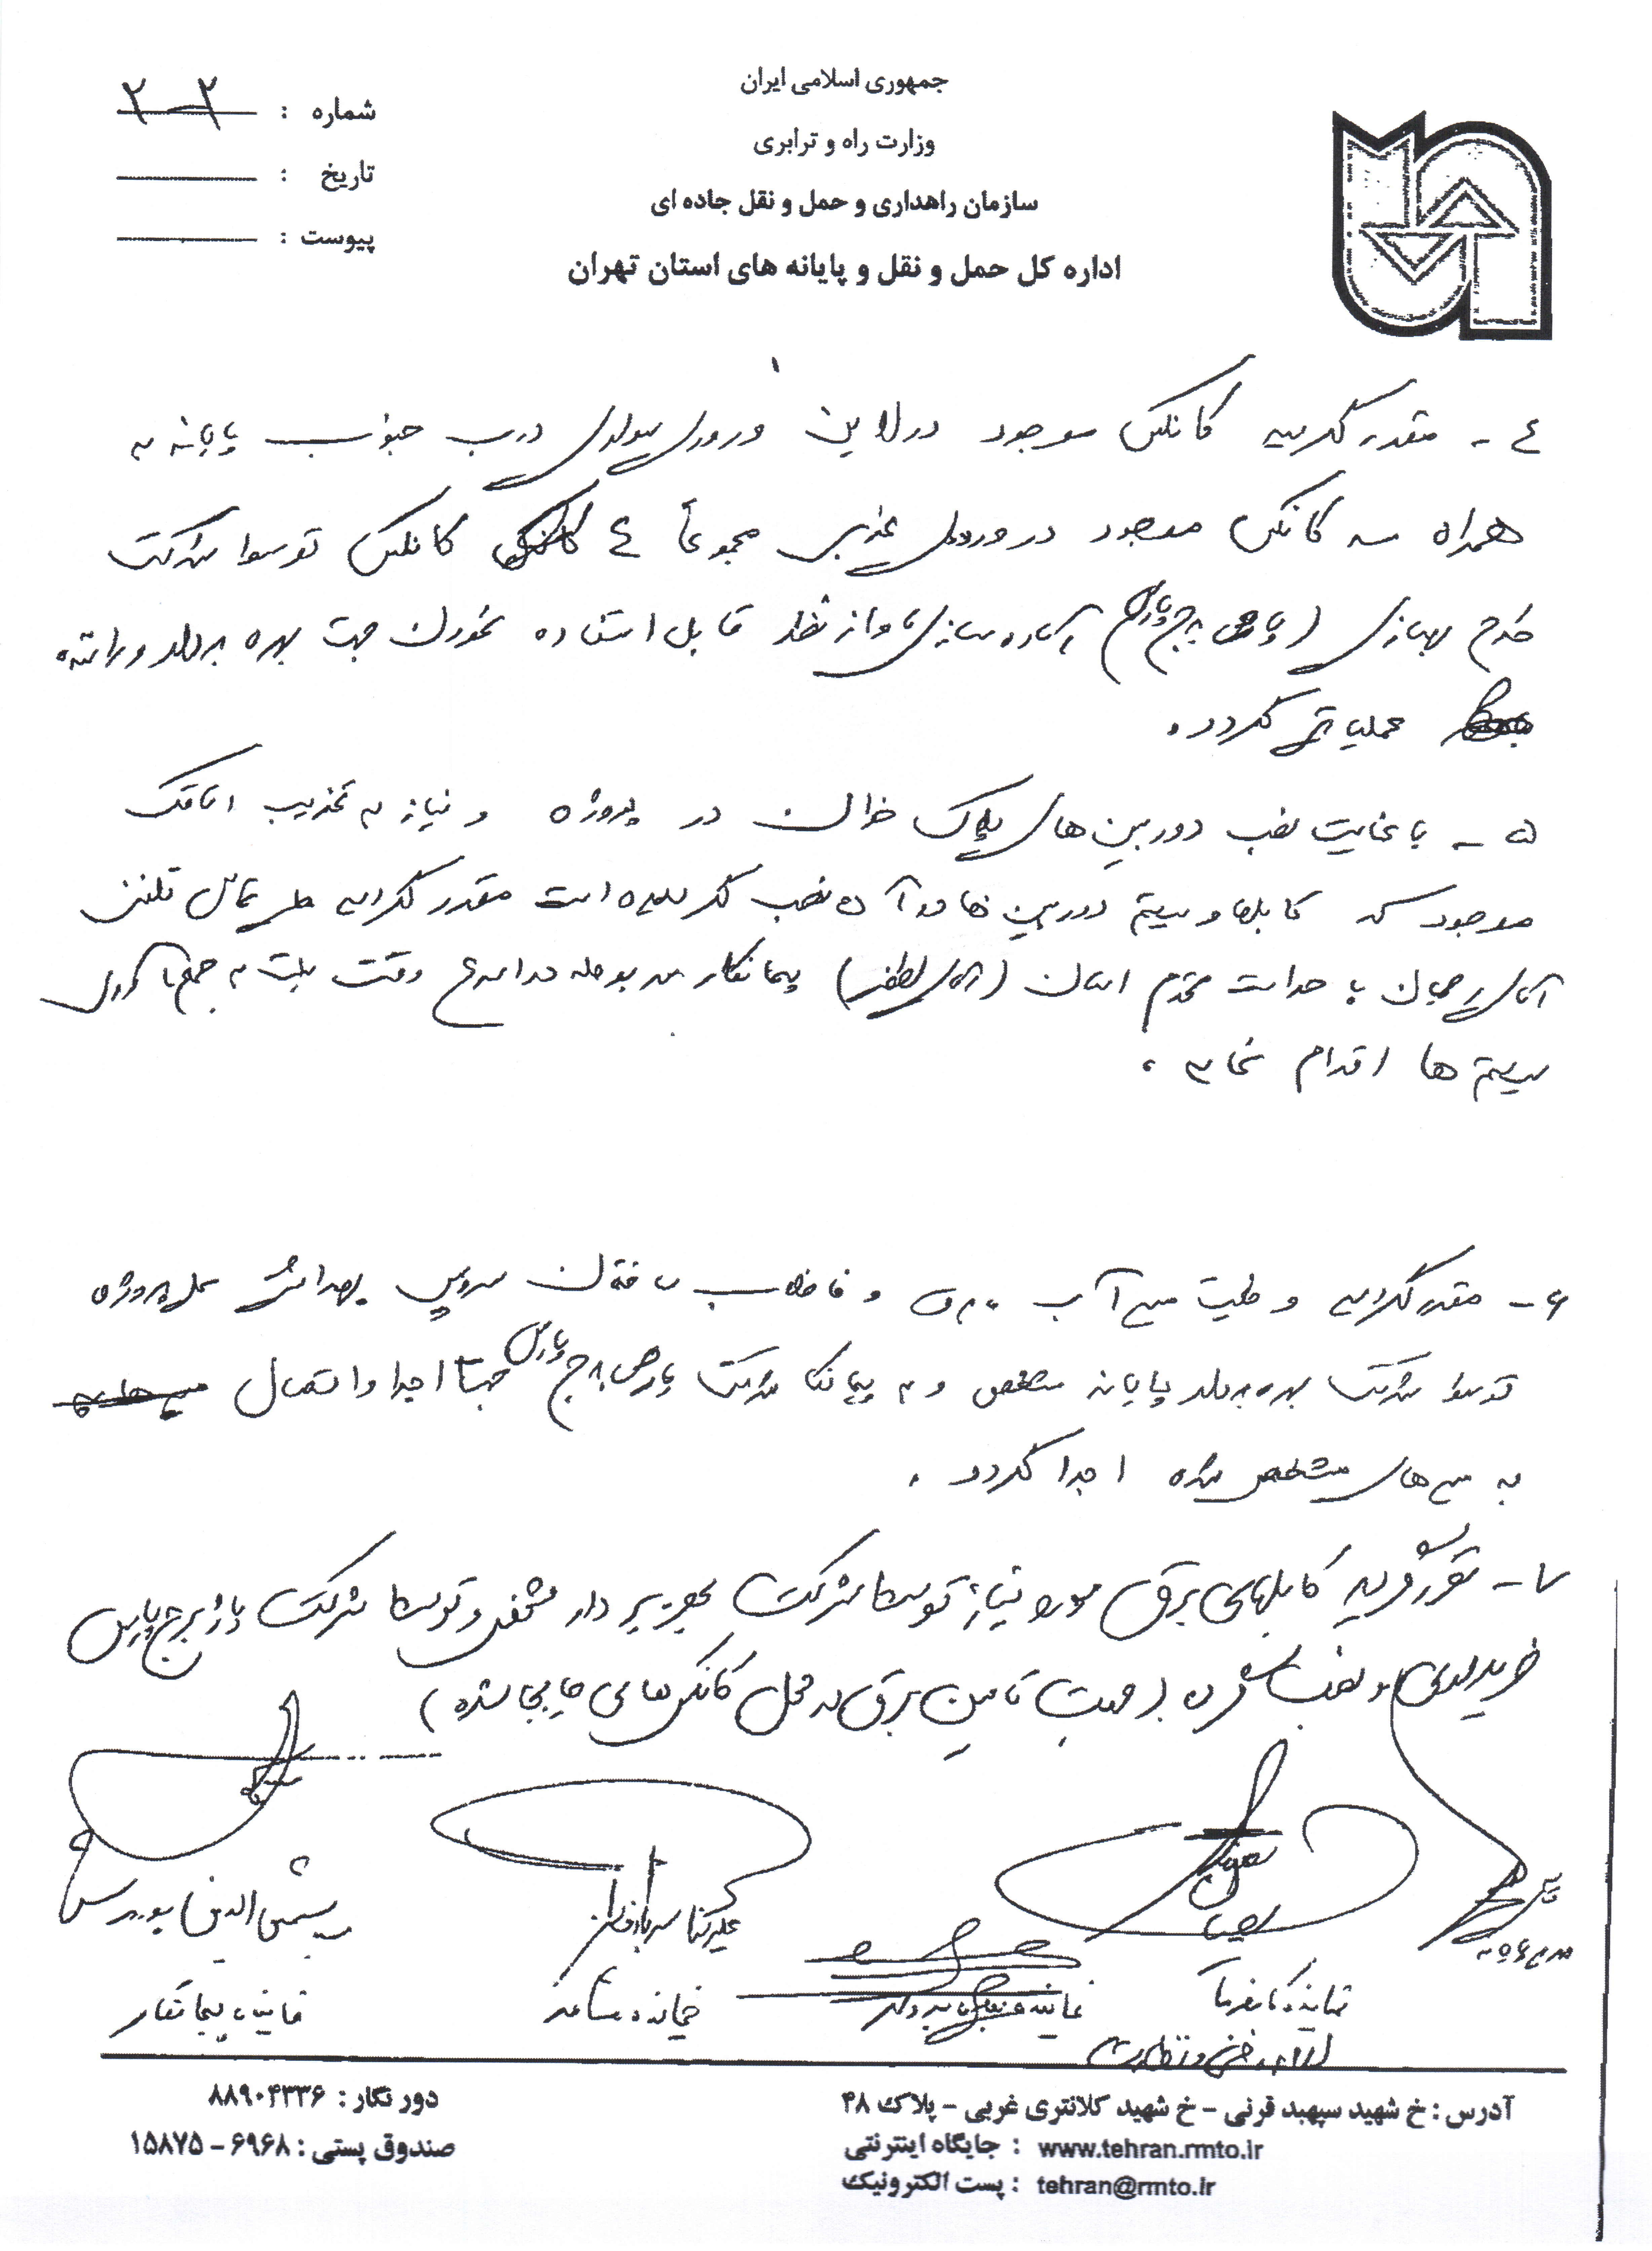 جمهوری اسلامی ایران
وزارت راه و ترابری
سازمان راهداری و حمل و نقل جاده ای
اداره کل حمل و نقل و پایانه های استان تهران
شماره : ۲-۲
تاریخ :
پیوست :
۴- مقرر گردید کانکس موجود در لاین ورودی سواری درب جنوب پایانه به
همراه سه کانکس موجود در ورودی غربی مجموعاً ۴ کانکس توسط شرکت
طرح بهسازی (پارص برج پارس) آماده سازی و از نظر قابل استفاده نمودن جهت بهره بردار و راننده
عملیاتی گردد.
۵- با عنایت نصب دوربین های پلاک خوان در پروژه و نیاز به تخریب اتاقک
موجود که کابلها و سیستم دوربین ها در آن نصب گردیده است مقرر گردید طی تماس تلفنی
آقای رحمیان با حراست محترم استان (آقای لطفی) پیمانکار مربوطه در اسرع وقت نسبت به جمع آوری
سیستم ها اقدام نماید.
۶- مقرر گردید وضعیت مسیر آب برق و فاضلاب سرویس بهداشتی محل پروژه
توسط شرکت بهره بردار پایانه مشخص و به پیمانکار شرکت پارص برج پارس جهت اجرا و اتصال
به مسیرهای مشخص شده اجرا گردد.
۷- مقرر شد کابلهای برق مورد نیاز توسط شرکت بهره بردار مشخص و توسط شرکت پارژ برج پارس
خریداری و نصب گردد (جهت تامین برق به محل کانکس های جابجا شده)
نماینده کارفرما
نماینده بهره بردار
علیرضا
نماینده مشاور
شمس الدین
نماینده پیمانکار
آدرس : خ شهید سپهبد قرنی - خ شهید کلانتری غربی - پلاک ۴۸
جایگاه اینترنتی : www.tehran.rmto.ir
پست الکترونیک : tehran@rmto.ir
دور نگار : ۸۸۹۰۴۳۳۶
صندوق پستی : ۶۹۶۸ - ۱۵۸۷۵